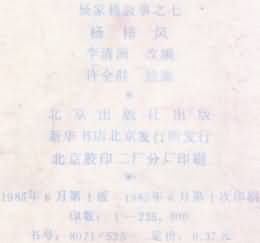 杨家将故事之七
杨 排 风
李清洲 改编
许全群 绘画
北京出版社出版
新华书店北京发行所发行
北京胶印二厂分厂印刷
1985年6月第1版 1985年6月第1次印刷
印数：1—225,000
书号：8071·525 定价：0.37元